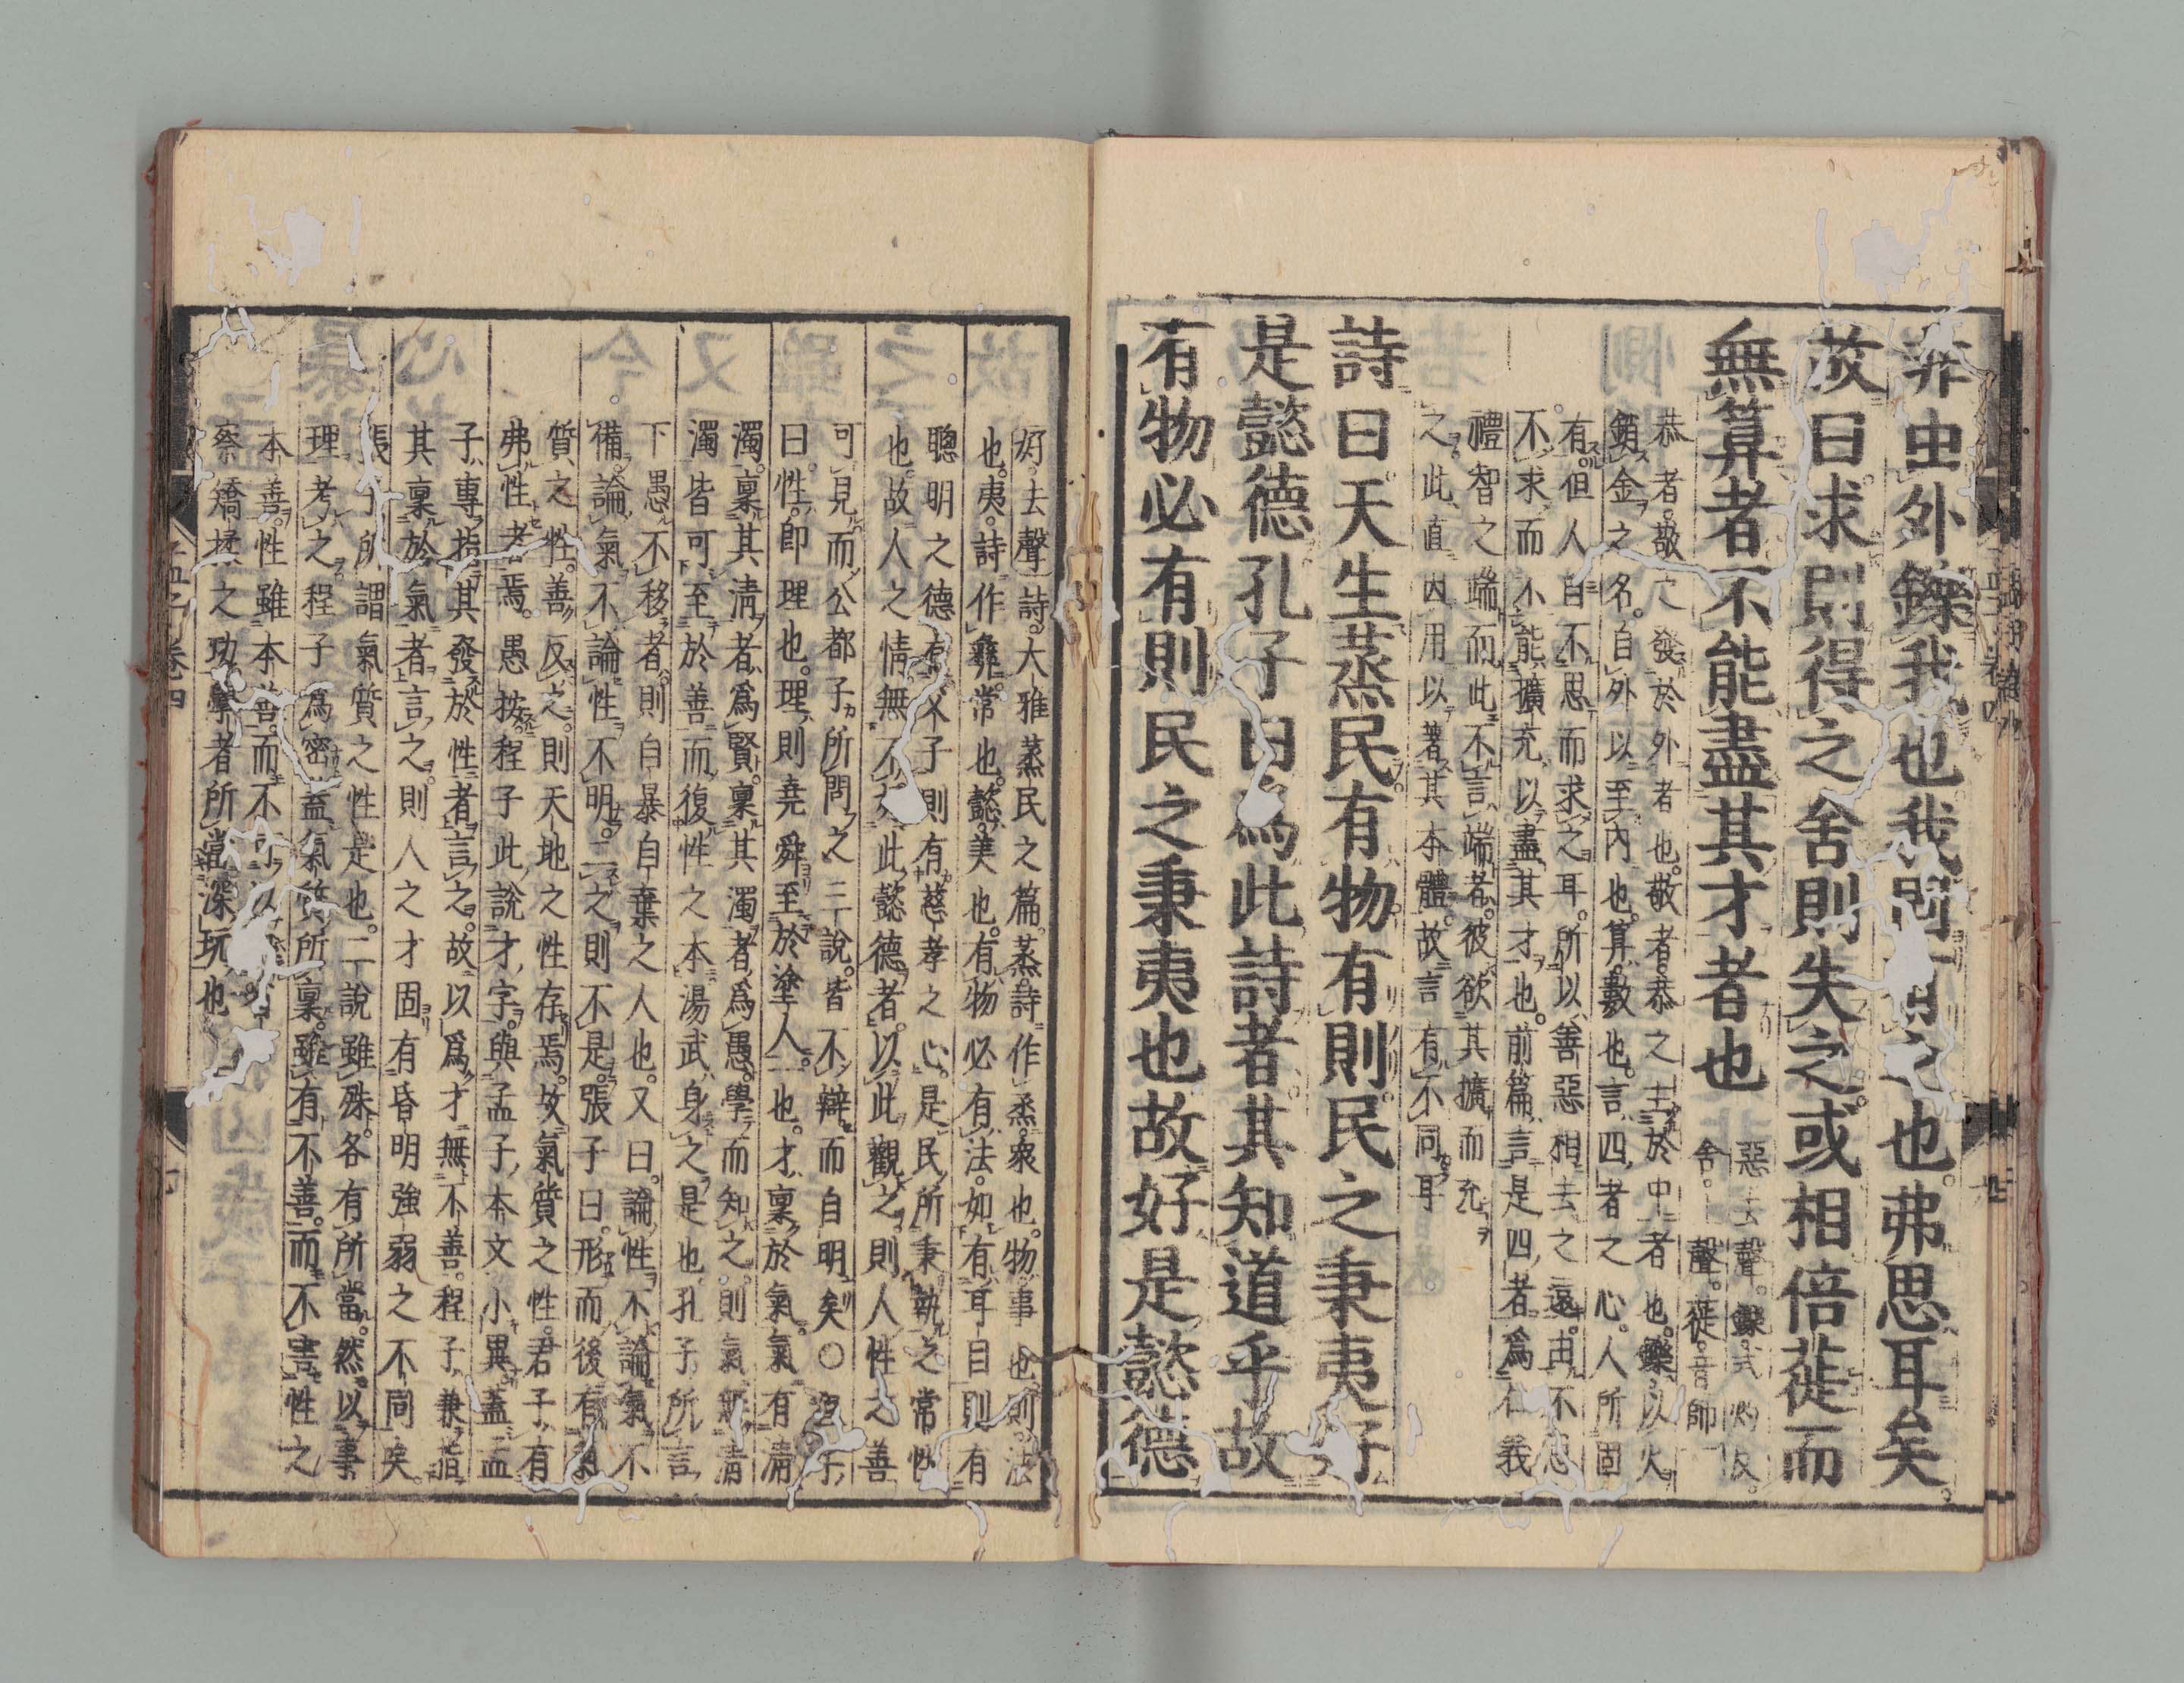 非由外鑠我也我固有之也弗思耳矣
故曰求則得之舍則失之或相倍蓰而
無算者不能盡其才者也
惡去聲鑠式灼反
舍上聲蓰音師
恭者敬之發於外者也敬者恭之主於中者也鑠以火
銷金之名自外以至內也算數也言四者之心人所固
有但人自不思而求之耳所以善惡相去之遠由不思
不求而不能擴充以盡其才也前篇言是四者爲仁義
禮智之端而此不言端者彼欲其擴而充
之此直因用以著其本體故言有不同耳
詩曰天生蒸民有物有則民之秉夷好
是懿德孔子曰爲此詩者其知道乎故
有物必有則民之秉夷也故好是懿德
好去聲詩大雅蒸民之篇蒸詩作烝衆也物事也則法
也夷詩作彝常也懿美也有物必有法如有耳目則有
聰明之德有父子則有慈孝之心是民所秉執之常性
也故人之情無不好此懿德者以此觀之則人性之善
可見而公都子所問之三說皆不辯而自明矣○程子
曰性即理也理則堯舜至於塗人一也才稟於氣氣有淸
濁稟其淸者爲賢稟其濁者爲愚學而知之則氣無淸
濁皆可至於善而復性之本湯武身之是也孔子所言
下愚不移者則自暴自棄之人也又曰論性不論氣不
備論氣不論性不明二之則不是張子曰形而後有氣
質之性善反之則天地之性存焉故氣質之性君子有
弗性者焉愚按程子此說才字與孟子本文小異蓋孟
子專指其發於性者言之故以爲才無不善程子兼指
其稟於氣者言之則人之才固有昏明強弱之不同矣
張子所謂氣質之性是也二說雖殊各有所當然以事
理考之程子爲密蓋氣質所稟雖有不善而不害性之
本善性雖本善而不可以無省
察矯揉之功學者所當深玩也
孟子卷四